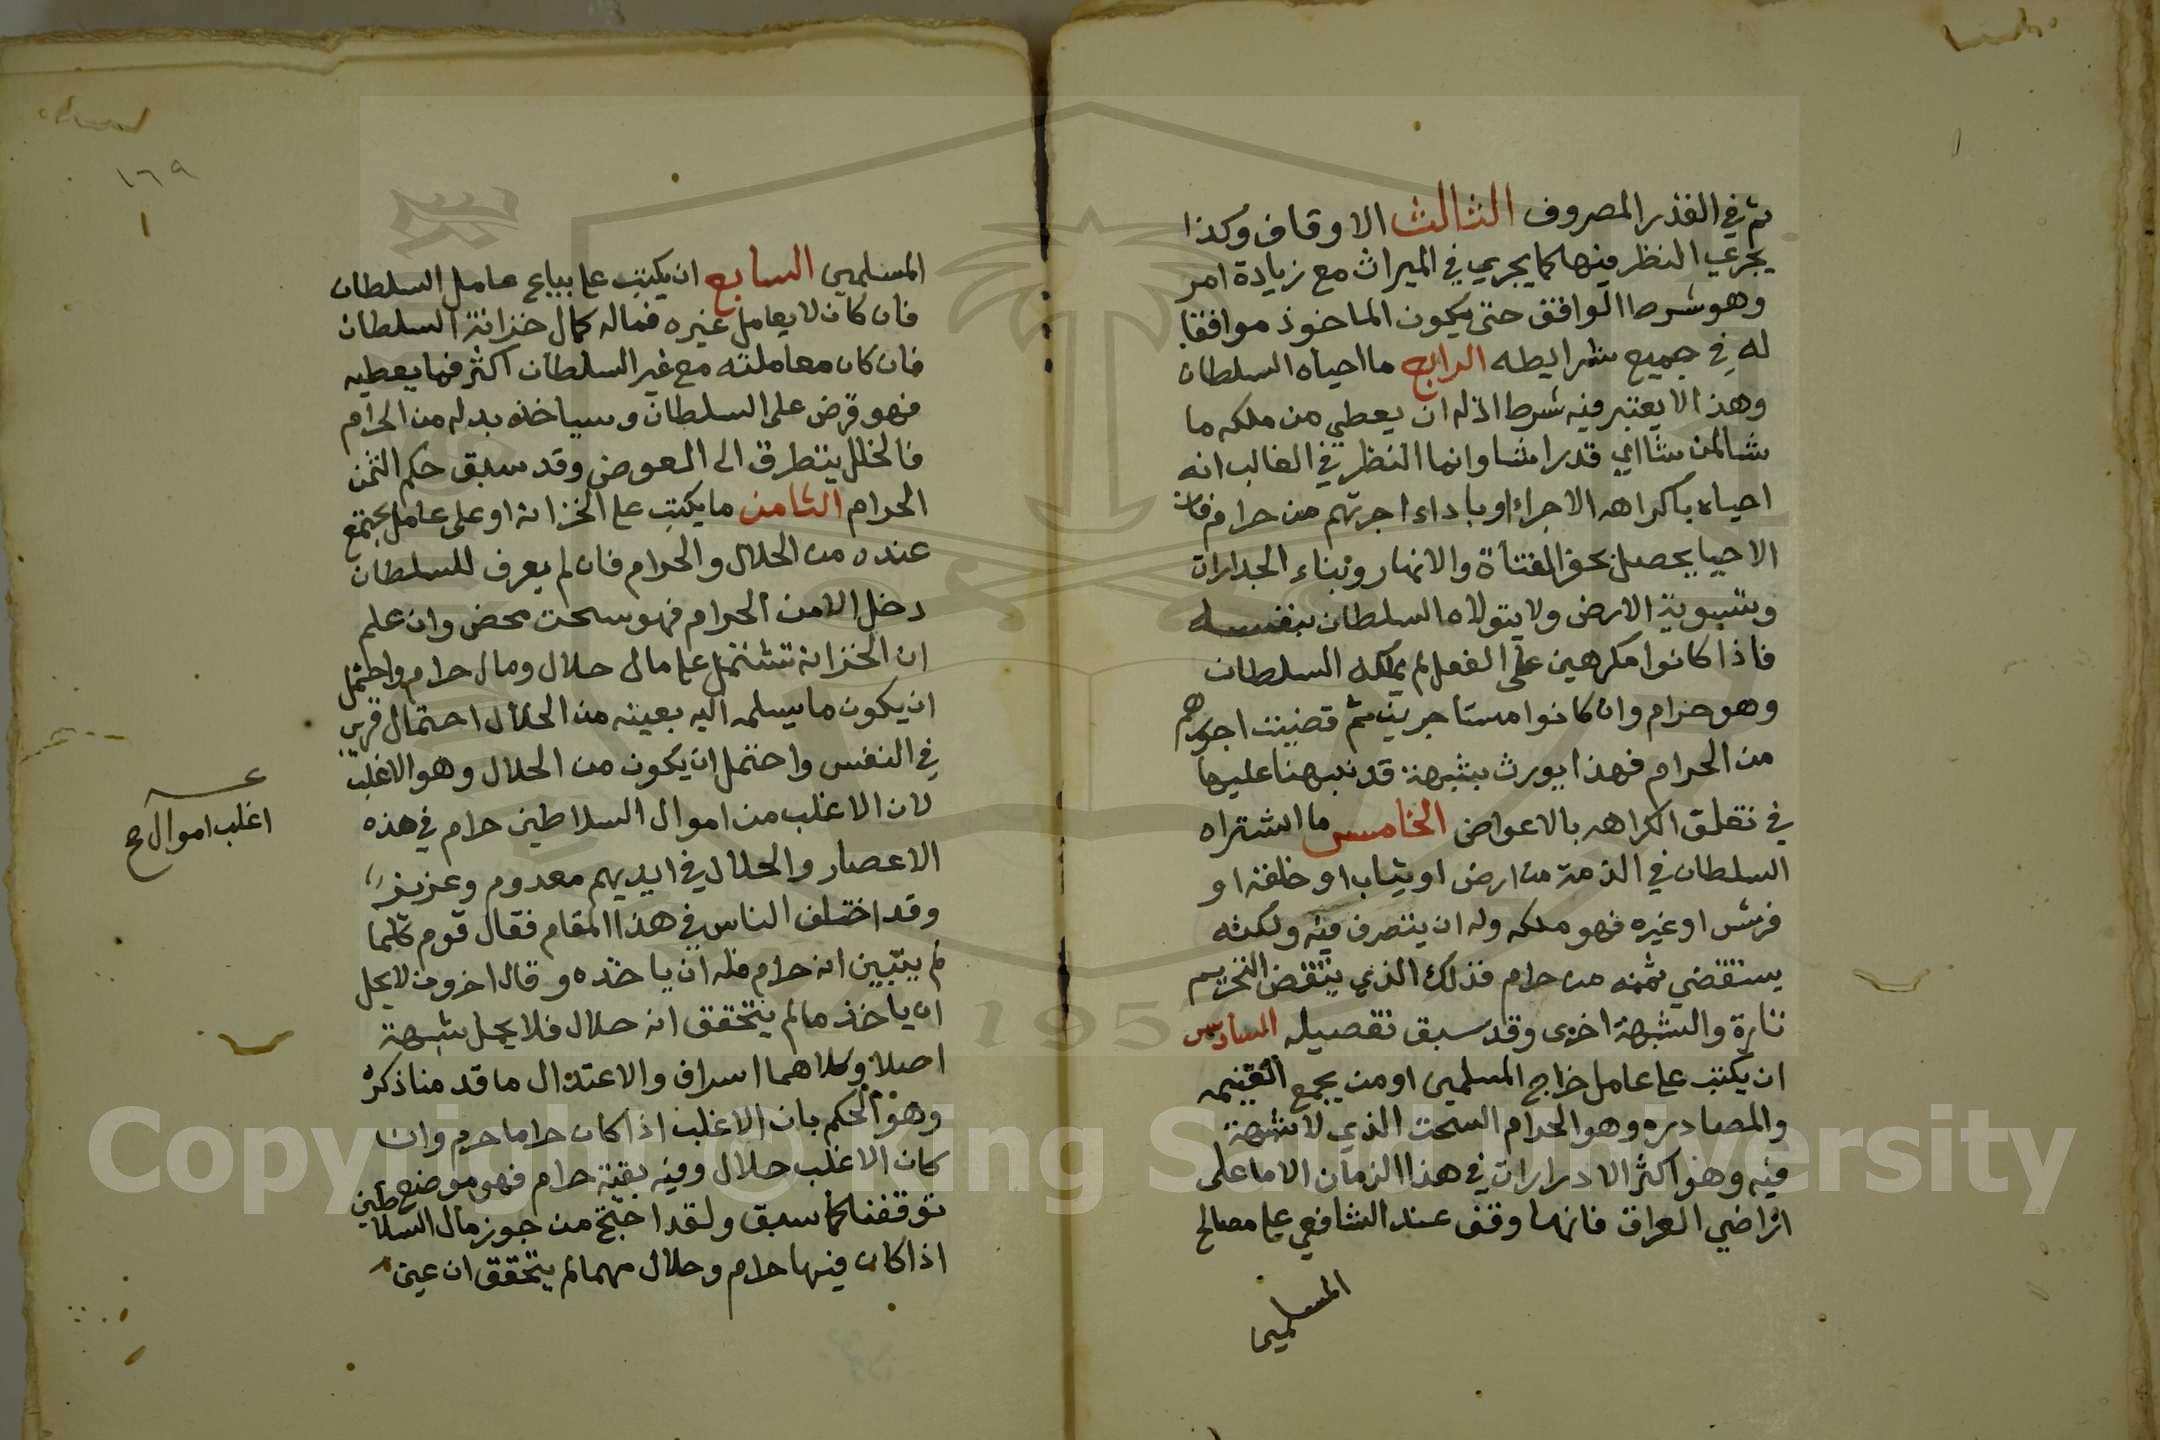 ثم في القدر المصروف الثالث الاوقاف وكذا
يجري النظر فيها كما يجري في الميراث مع زيادة امر
وهو شرط الواقف حتى يكون الماخوذ موافقا
له في جميع شرايطه الرابع ما احياه السلطان
وهذا لا يعتبر فيه شرط اذ له ان يعطي من ملكه ما
شا لمن شا اي قدرا شا وانما النظر في الغالب انه
احياه باكراهه الاجراء او باداء اجرتهم من حرام فان
الاحيا يحصل بحفر القناة والانهار وبناء الجدارات
وتسوية الارض ولا يتولاه السلطان بنفسه
فاذا كانوا مكرهين على الفعل لم يملكه السلطان
وهو حرام وان كانوا مستاجرين ثم قضيت اجورهم
من الحرام فهذا يورث شبهة قد نبهنا عليها
في تعلق الكراهه بالاعواض الخامس ما اشتراه
السلطان في الذمة من ارض او ثياب او خلعة او
فرس او غيره فهو ملكه وله ان يتصرف فيه ولكنه
سيقضي ثمنه من حرام فذلك الذي يقتضي التحريم
تارة والشبهة اخرى وقد سبق تفصيله السادس
ان يكتب على عامل خراج المسلمين او من يجمع القسمه
والمصادره وهو الحرام السحت الذي لا شبهة
فيه وهو اكثر الادرارات في هذا الزمان الا ما على
اراضي العراق فانها وقف عند الشافعي على مصالح
المسلمين
١٦٩
المسلمين السابع ان يكتب على بياع عامل السلطان
فان كان لا يعامل غيره فماله كمال خزانة السلطان
فان كان معاملته مع غير السلطان اكثر فما يعطيه
فهو قرض على السلطان وسياخذ بدله من الحرام
فالخلل يتطرق الى العوض وقد سبق حكم الثمن
الحرام الثامن ما يكتب على الخزانة او على عامل يجتمع
عنده من الحلال والحرام فان لم يعرف للسلطان
دخل الا من الحرام فهو سحت محض وان علم
ان الخزانة تشتمل على مال حلال ومال حرام واحتمل
ان يكون ما يسلمه اليه بعينه من الحلال احتمال قريب
في النفس واحتمل ان يكون من الحلال وهو الاغلب
لان الاغلب من اموال السلاطين حرام في هذه
الاعصار والحلال في ايديهم معدوم وعزيز
وقد اختلف الناس في هذا المقام فقال قوم كلما
لم يتبين انه حرام فله ان ياخذه وقال اخرون لا يحل
ان ياخذ ما لم يتحقق انه حلال فلا يحل شبهة
اصلا وكلاهما اسراف والاعتدال ما قدمنا ذكره
وهو الحكم بان الاغلب اذا كان حراما حرم وان
كان الاغلب حلال وفيه بقية حرام فهو موضع
توقفنا كما سبق ولقد احتج من جوز مال السلاطين
اذا كان فيها حرام وحلال مهما لم يتحقق ان عين
اغلب اموال
Copyright © King Saud University
1957